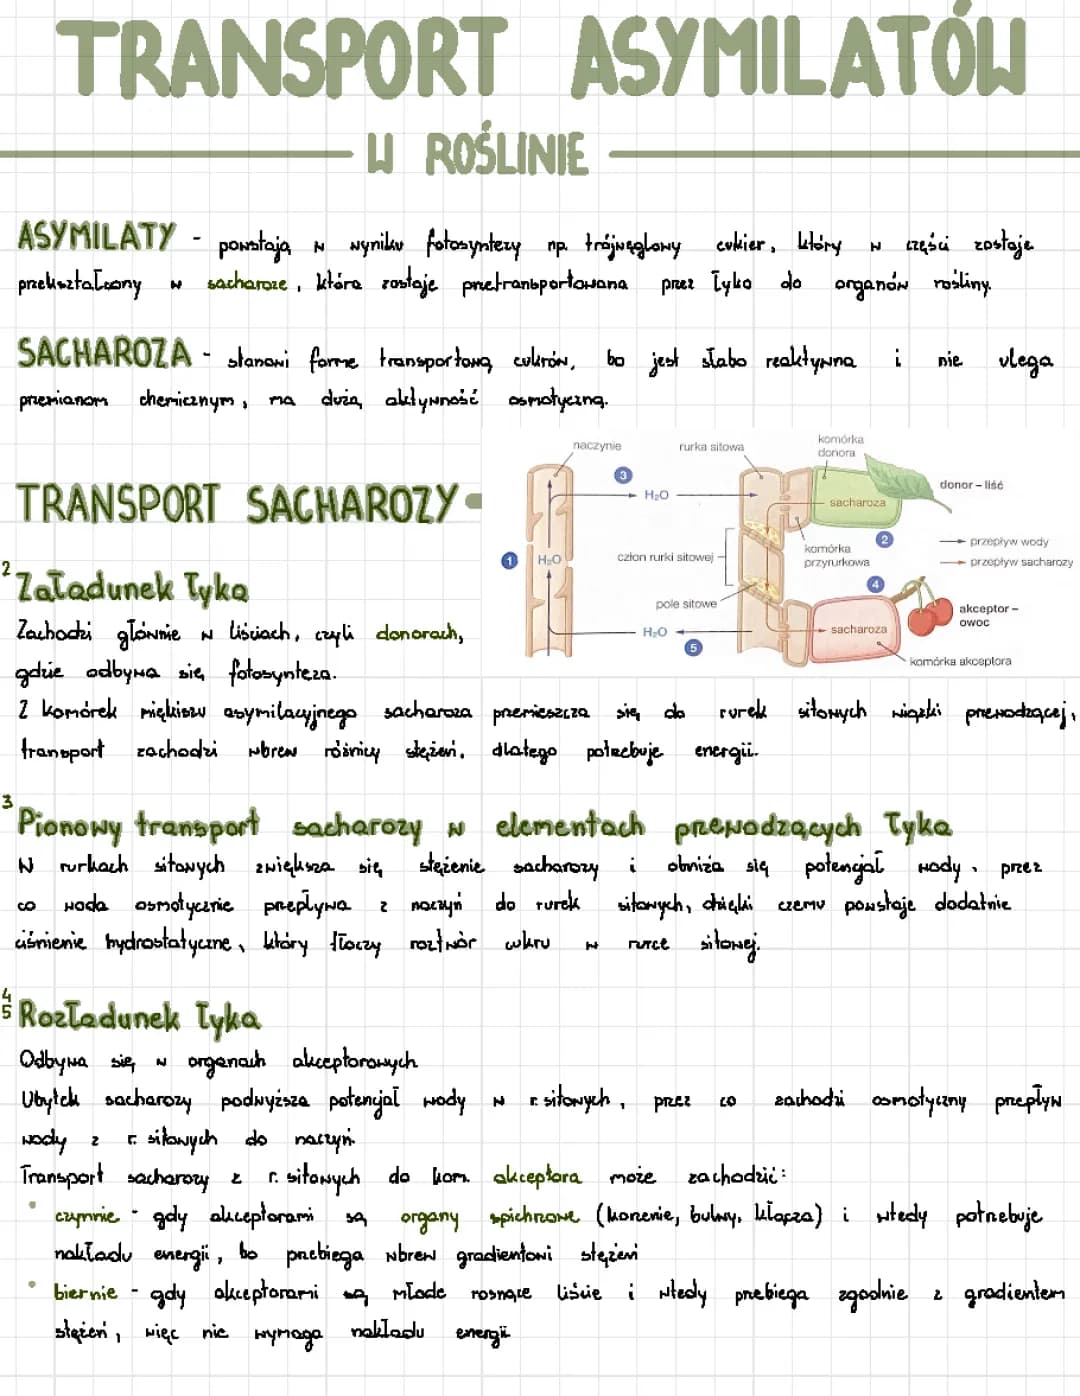 TRANSPORT ASYMILATÓW
W ROŚLINIE
ASYMILATY - powstają w wyniku fotosyntezy np. trójwęglowy cukier, który w części zostaje
przekształcony w sacharozę, która zostaje przetransportowana przez łyko do organów rośliny.
SACHAROZA - stanowi formę transportową cukrów, bo jest słabo reaktywna i nie ulega
przemianom chemicznym, ma dużą aktywność osmotyczną.
TRANSPORT SACHAROZY
naczynie
rurka sitowa
komórka
donora
3
H₂O
sacharoza
donor – liść
1
H₂O
człon rurki sitowej
komórka
przyrurkowa
2
przepływ wody
przepływ sacharozy
4
pole sitowe
akceptor –
owoc
H₂O
5
sacharoza
komórka akceptora
2 Załadunek łyka
Zachodzi głównie w liściach, czyli donorach,
gdzie odbywa się fotosynteza.
Z komórek miękiszu asymilacyjnego sacharoza przemieszcza się do rurek sitowych wiązki przewodzącej,
transport zachodzi wbrew różnicy stężeń, dlatego potrzebuje energii.
3 Pionowy transport sacharozy w elementach przewodzących łyka
W rurkach sitowych zwiększa się stężenie sacharozy i obniża się potencjał wody, przez
co woda osmotycznie przepływa z naczyń do rurek sitowych, dzięki czemu powstaje dodatnie
ciśnienie hydrostatyczne, który tłoczy roztwór cukru w rurce sitowej.
4
5 Rozładunek łyka
Odbywa się w organach akceptorowych
Ubytek sacharozy podwyższa potencjał wody w r. sitowych, przez co zachodzi osmotyczny przepływ
wody z r. sitowych do naczyń.
Transport sacharozy z r. sitowych do kom. akceptora może zachodzić:
• czynnie - gdy akceptorami są organy spichrzowe (korzenie, bulwy, kłącza) i wtedy potrzebuje
nakładu energii, bo przebiega wbrew gradientowi stężeń
• biernie - gdy akceptorami są młode rosnące liście i wtedy przebiega zgodnie z gradientem
stężeń, więc nie wymaga nakładu energii